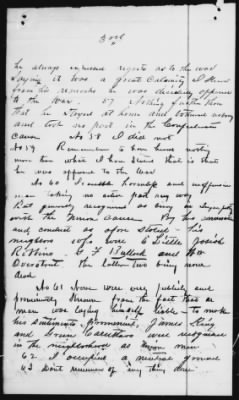 he always expressed regrets as to the war
saying it was a great Calamity I thought
from his remarks he was decidedly opposed
to the war. 57 Nothing further than
that he stayed at home and
and took no part in the Confederate
cause No 58 I did not
No 59 Remember to have heard nothing
more than what I have stated that is that
he was opposed to the War
No 60 harmless and inoffensive
man taking no active part any way
But generally recognized as being in Sympathy
with the Union Cause By his
and conduct as afore Stated - his
neighbors were C Little Josiah
Robbins G F Bullock and Wm
Overstreet the latter two being now
dead
No 61 None were very publicly and
prominently known from the fact that a
man was laying himself liable to make
his sentiments prominent, James King
and Green Carruthers were recognized
in the neighborhood as Union men
62 I occupied a neutral ground
63 Dont remember of any thing